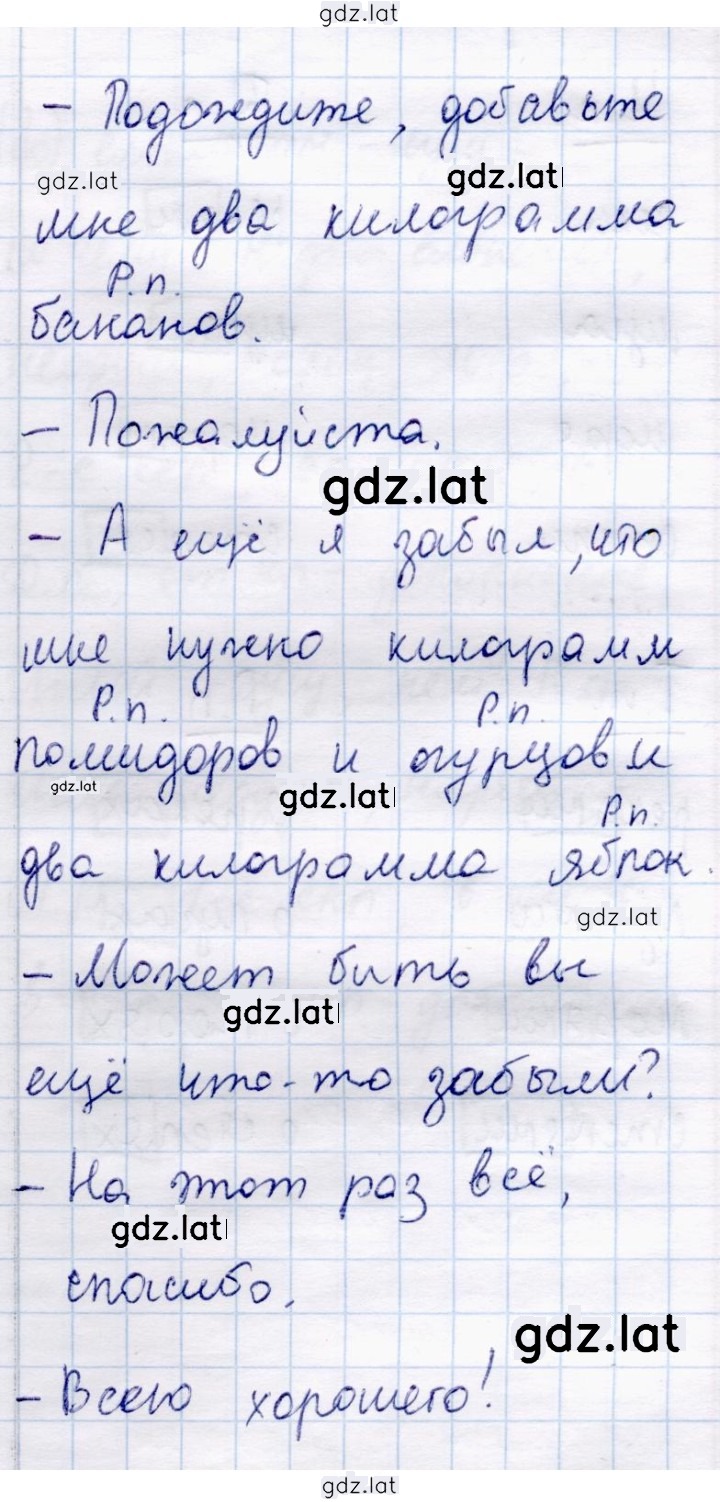 gdz.lat
– Подождите, добавьте
gdz.lat
gdz.lat
мне два килограмма
Р.п.
бананов.
– Пожалуйста.
gdz.lat
– А ещё я забыл, что
мне нужно килограмм
Р.п. Р.п.
помидоров и огурцов и
gdz.lat
gdz.lat
Р.п.
два килограмма яблок.
gdz.lat
– Может быть вы
gdz.lat
ещё что-то забыли?
– На этот раз всё,
gdz.lat
спасибо.
gdz.lat
– Всего хорошего!
gdz.lat